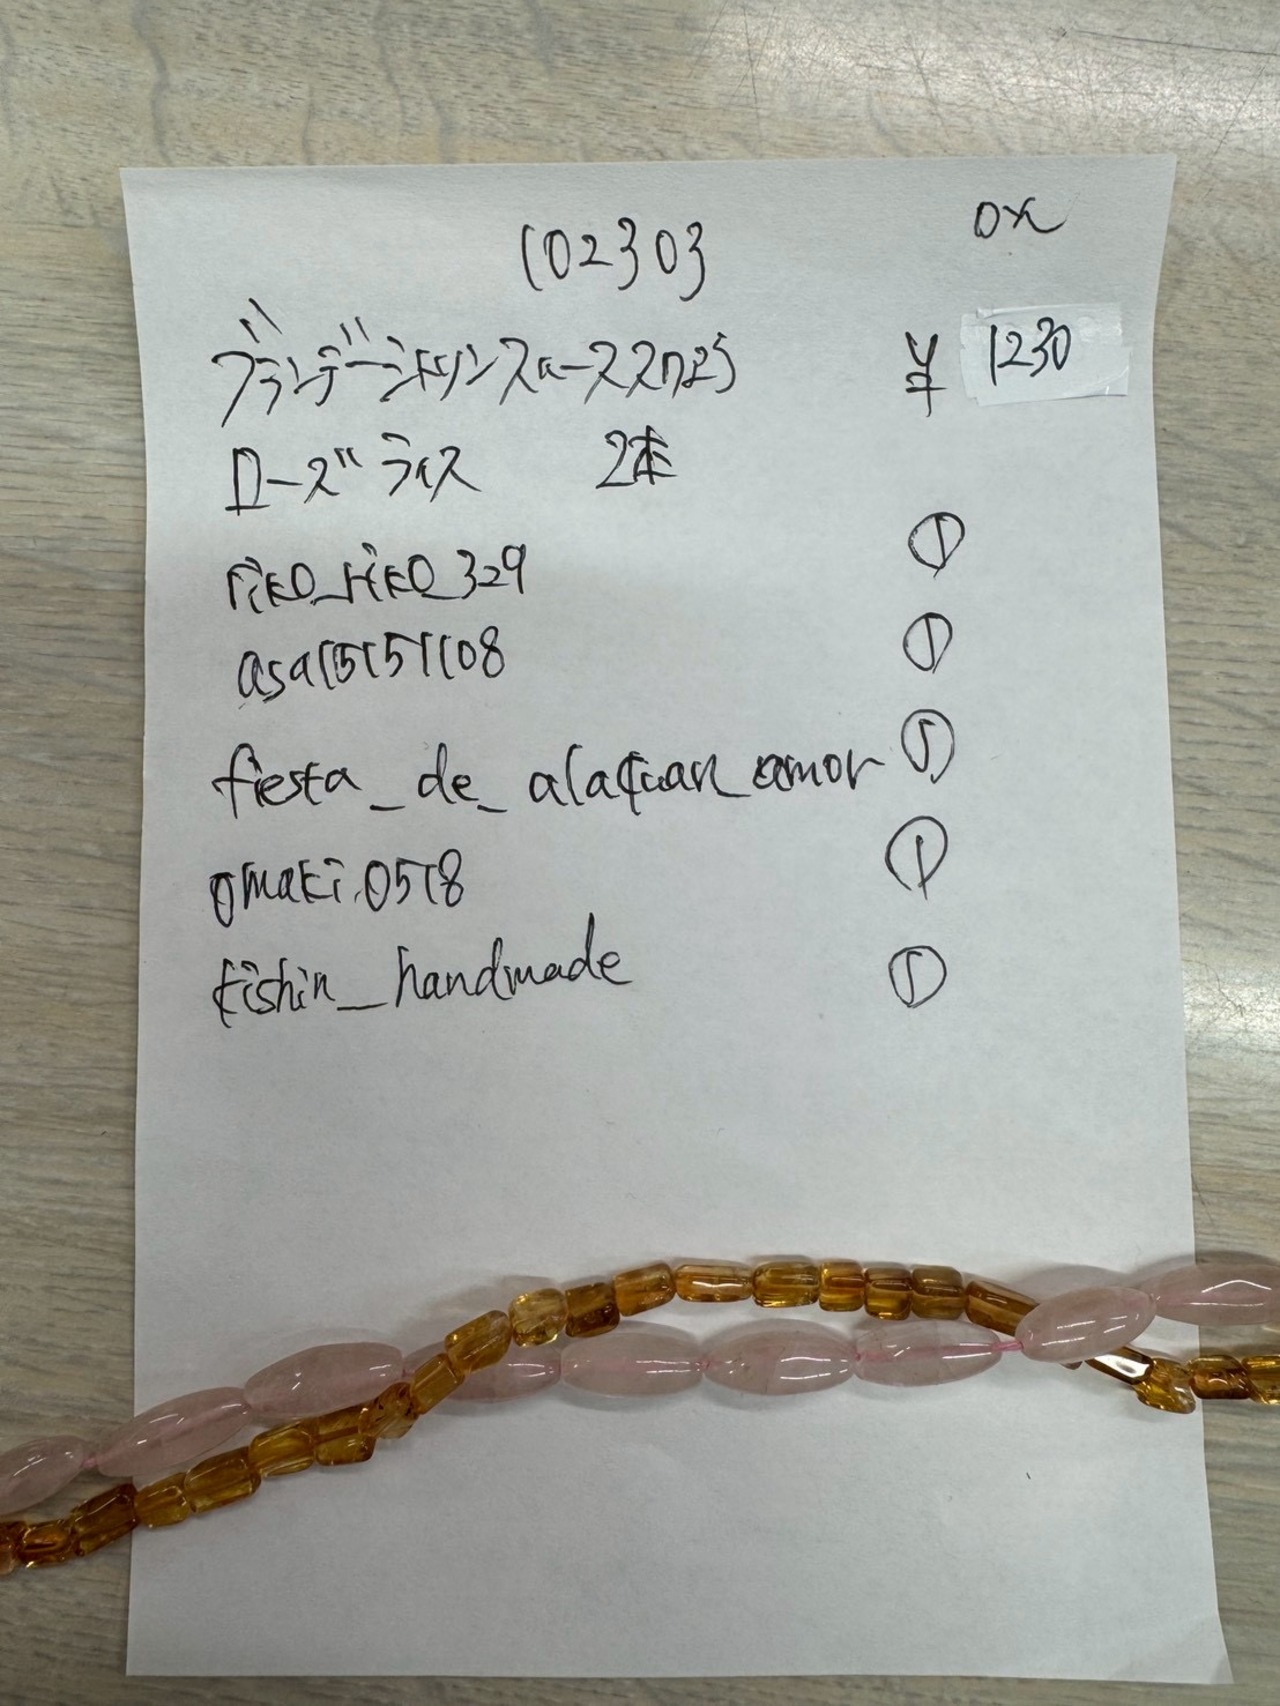 102303
ox
ブランデーシトリンスムース
¥ 1230
ローズライス 2本
riko_riko_329 ①
asa15151108 ①
fiesta_de_alacran_amor ①
omaki.0518 ①
kishin_handmade ①